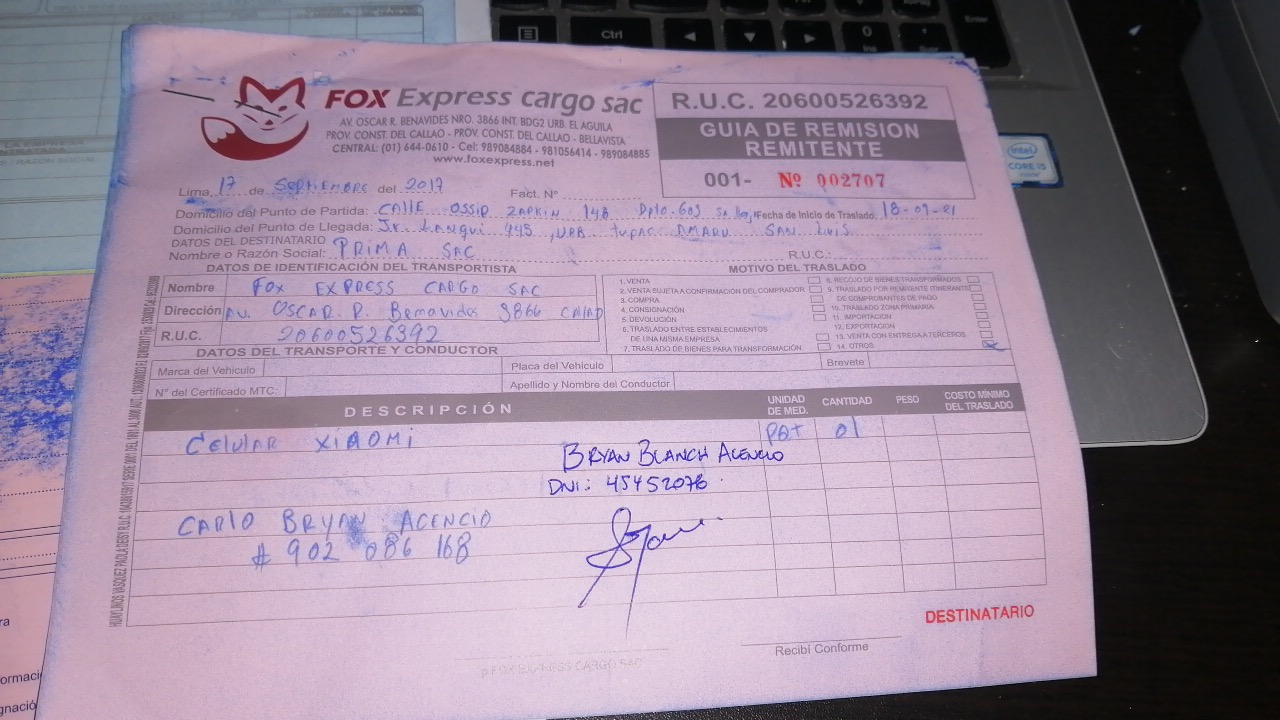 FOX Express cargo sac
AV. OSCAR R. BENAVIDES NRO. 3866 INT. BDG2 URB. EL AGUILA
PROV. CONST. DEL CALLAO - PROV. CONST. DEL CALLAO - BELLAVISTA
CENTRAL: (01) 644-0610 - Cel: 989084884 - 981056414 - 989084885
www.foxexpress.net
R.U.C. 20600526392
GUIA DE REMISION
REMITENTE
001- Nº 002707
Lima, 17 de Septiembre del 2017 Fact. Nº
Domicilio del Punto de Partida: CALLE OSSIP ZADKIN 148 Dpto. 603 Fecha de Inicio de Traslado: 18-09-21
Domicilio del Punto de Llegada: Jr. 445, URB. tupac AMARU SAN LUIS
DATOS DEL DESTINATARIO
Nombre o Razón Social: PRIMA SAC R.U.C.:
DATOS DE IDENTIFICACIÓN DEL TRANSPORTISTA
Nombre FOX EXPRESS CARGO SAC
Dirección AV. OSCAR R. Benavides 3866
R.U.C. 20600526392
MOTIVO DEL TRASLADO
1. VENTA
2. VENTA SUJETA A CONFIRMACIÓN DEL COMPRADOR
3. COMPRA
4. CONSIGNACIÓN
5. DEVOLUCIÓN
6. TRASLADO ENTRE ESTABLECIMIENTOS
DE UNA MISMA EMPRESA
7. TRASLADO DE BIENES PARA TRANSFORMACIÓN
8. RECOJO DE BIENES TRANSFORMADOS
9. TRASLADO POR REMITENTE ITINERANTE
DE COMPROBANTES DE PAGO
10. TRASLADO ZONA PRIMARIA
11. IMPORTACIÓN
12. EXPORTACIÓN
13. VENTA CON ENTREGA A TERCEROS
14. OTROS
DATOS DEL TRANSPORTE Y CONDUCTOR
Marca del Vehículo Placa del Vehículo Brevete
N° del Certificado MTC: Apellido y Nombre del Conductor
DESCRIPCIÓN UNIDAD DE MED. CANTIDAD PESO COSTO MÍNIMO DEL TRASLADO
Celular XIAOMI 01
BRYAN BLANCH ACENCIO
DNI: 45452076
CARLO BRYAN ACENCIO
# 902 086 168
DESTINATARIO
Recibí Conforme
p.FOX EXPRESS CARGO SAC
Ctrl
Enter
0
Ins
intel
CORE i5